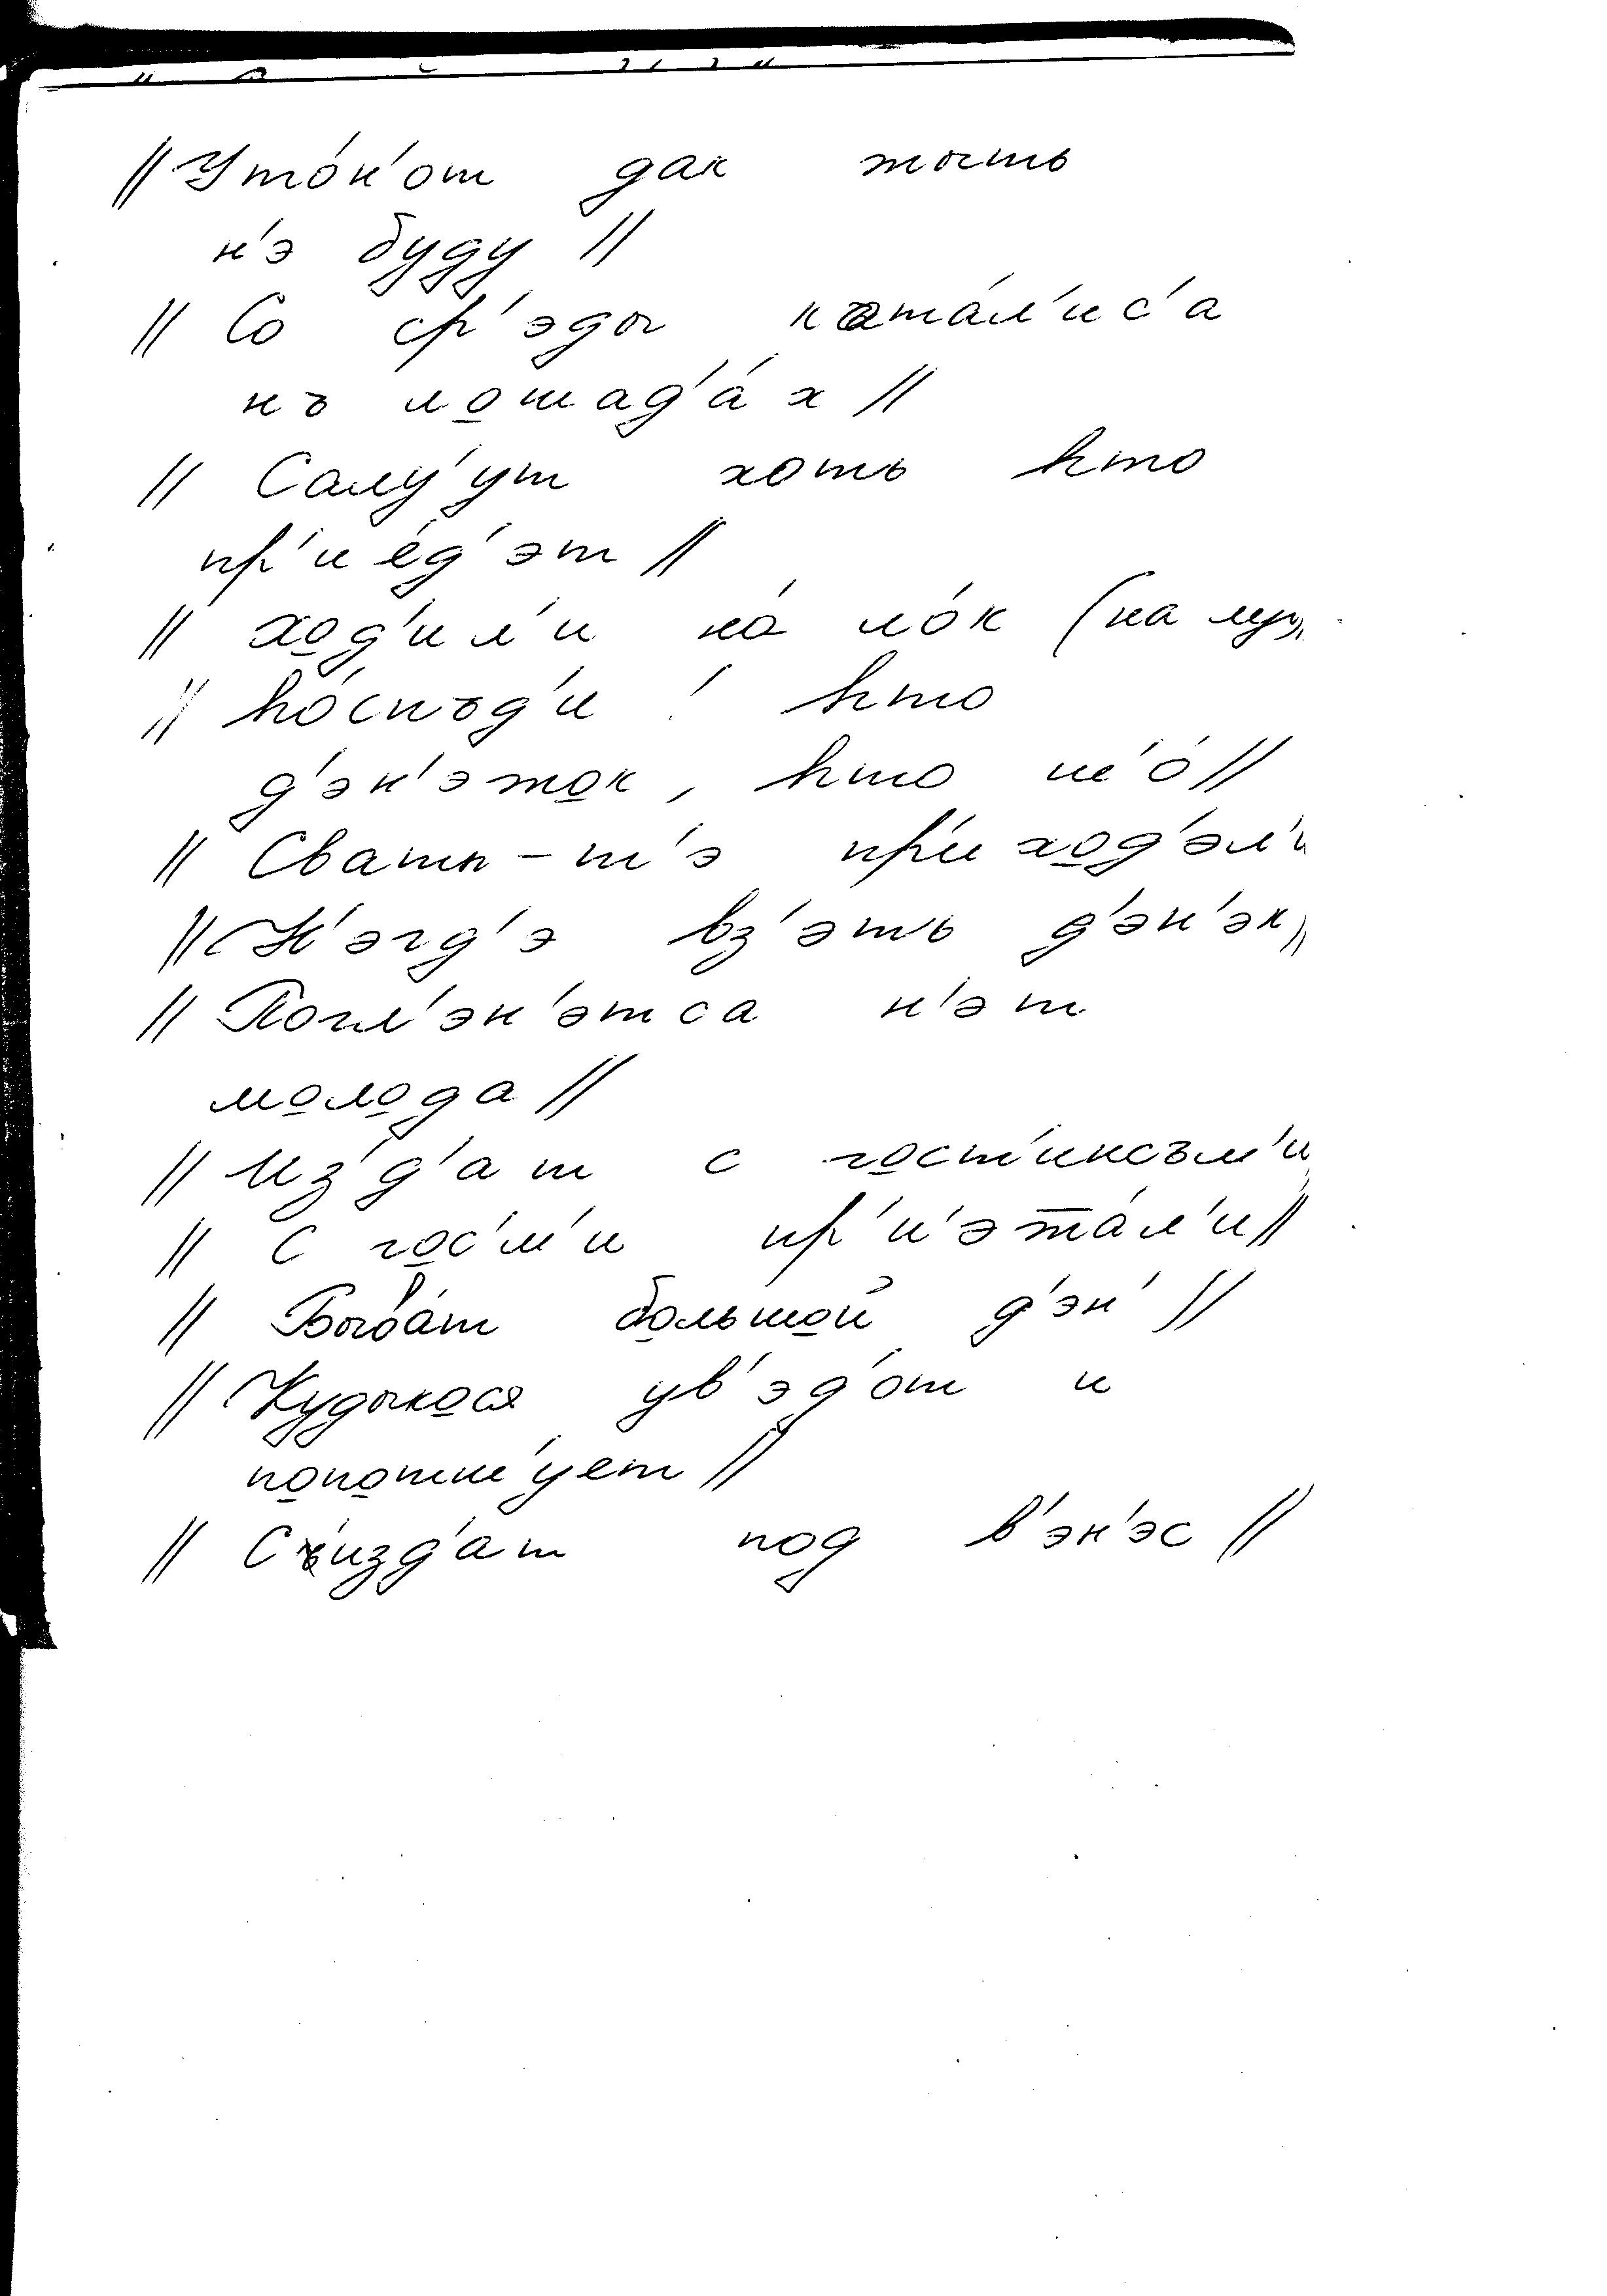 // Уто́н'от дак тыть
н'э буду //
// Со ср'эды катáл'ис'а
нъ лошад'áх //
// Салу'ут хоть hто
пр'иéд'эт //
// ход'ил'и нá лóк (на луг)
// hóспъд'и ! hто
д'эн'эток, hто ш'ó //
// Сваты-т'э пр'иход'эл'и
// Н'эгд'э вз'эть д'эн'эк //
// Погл'эн'этса н'эт
молода //
// Из'д'ат с гост'инсъм'и
// С гос'м'и пр'и'этáл'и //
// Бывáт большой д'эн' //
// Кудыкося ув'эд'от и
попотш'ует //
// Сйизд'ат под в'эн'эс //